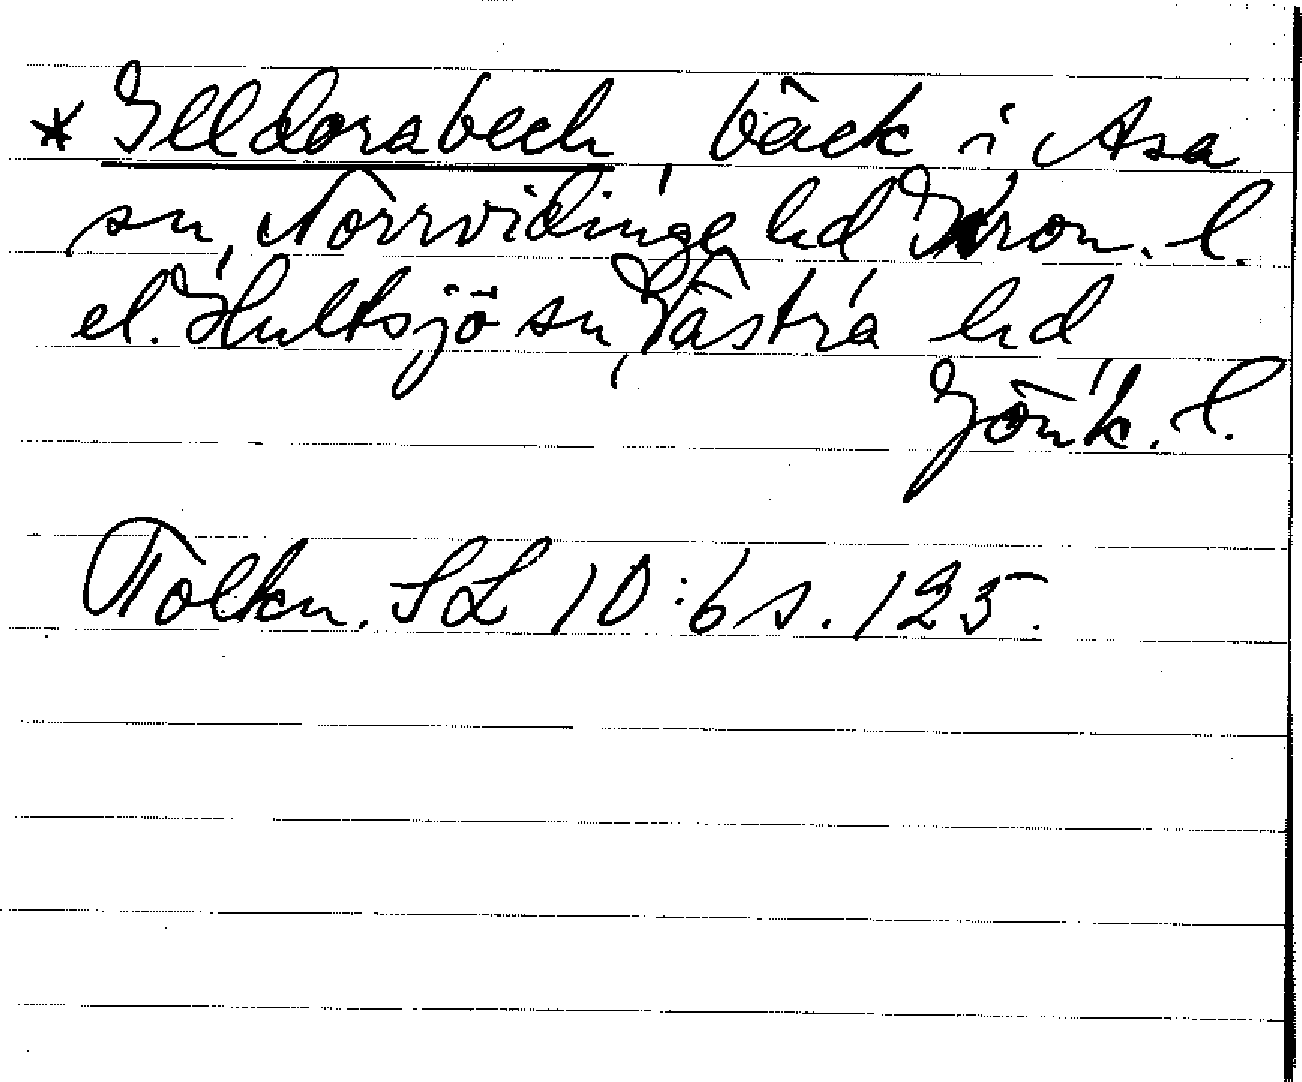 * Illdorabech, bäck i Asa
sn, Norrvidinge hd Kron. l.
el. Hultsjö sn, Västra hd
Jönk. l.
Tolkn. SL 10:6 s. 125.